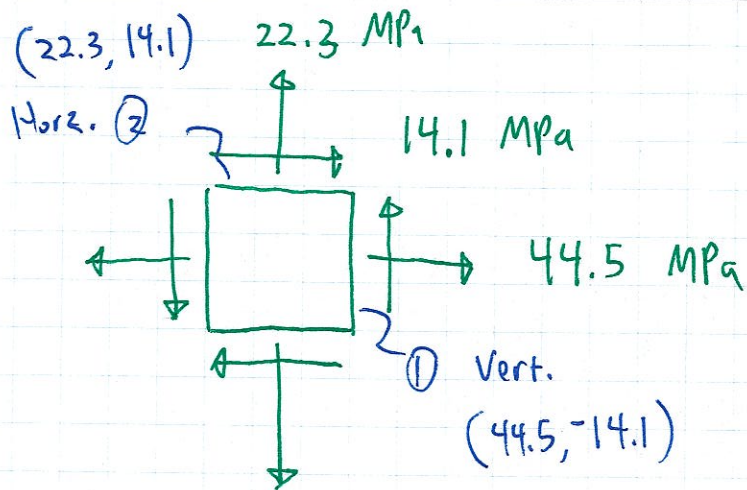 (22.3, 14.1) 22.3 MPa
Horz. ②
14.1 MPa
44.5 MPa
① Vert.
(44.5, -14.1)